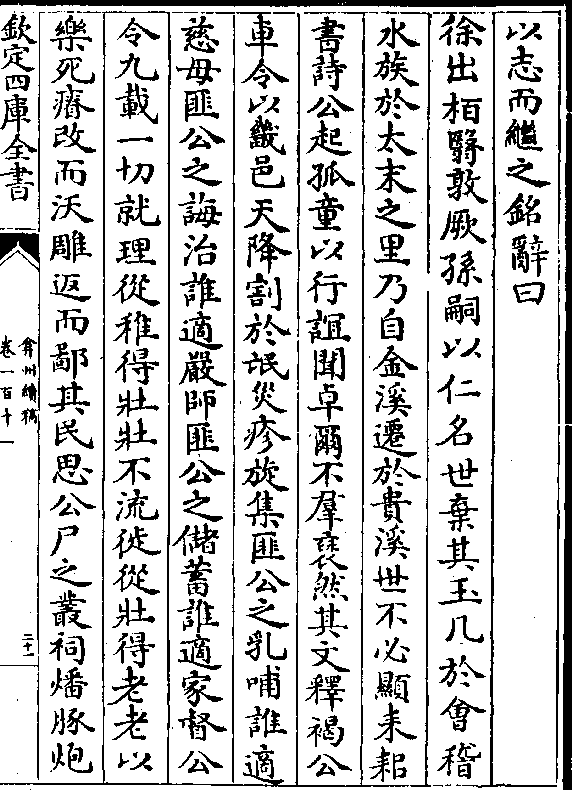 以志而繼之銘辭曰
徐出栢翳敦厥孫嗣以仁名世棄其玉几於會稽
水族於太末之里乃自金溪遷於貴溪世不必顯耒耜
書詩公起孤童以行誼聞卓爾不羣裒然其文釋褐公
車令以畿邑天降割於氓災疹旋集匪公之乳哺誰適
慈母匪公之誨治誰適嚴師匪公之儲蓄誰適家督公
令九載一切就理從稚得壯壯不流徙從壯得老老以
樂死瘠改而沃雕返而鄙其民思公尸之叢祠燔豚炮
欽定四庫全書
弇州續稿
卷一百十
二十一